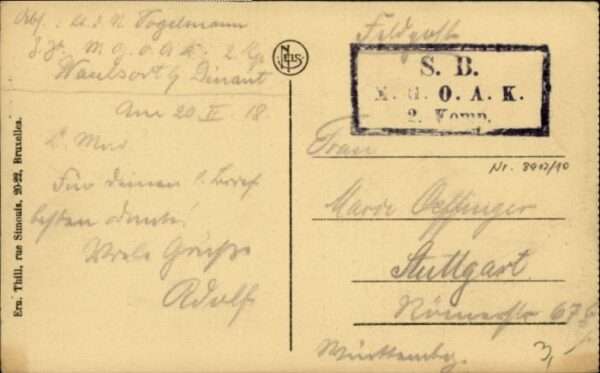 Abs: A d R Vogelmann
z. Zt. M. G. O. A. K. 2. Kp
Waulsort b/ Dinant
Am 20 II. 18.
L. 
Für deinen l. Brief
besten danke!
Viele Grüsse
Adolf
Ern. Thill, rue Simonis, 20-22, Bruxelles.
NELS
Feldpost
S. B.
M. G. O. A. K.
2. Komp.
Frau
Nr.
Marie Oeffinger
Stuttgart
Römerstr 67
Württemberg.
3,